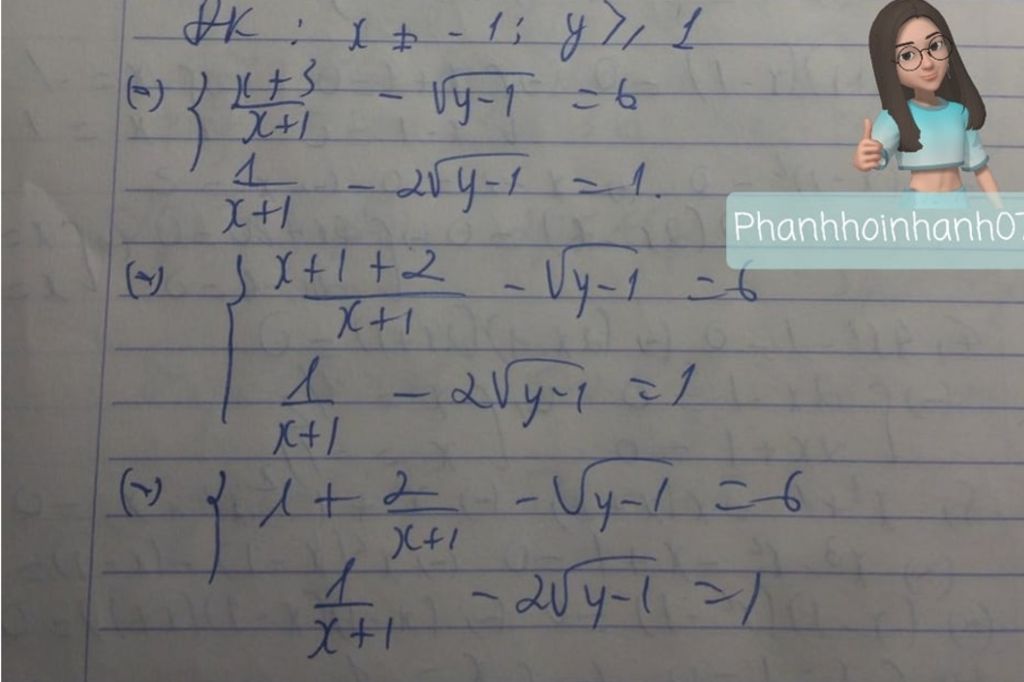 ĐK : x ≠ -1 ; y ≥ 1
(=) { (x+3)/(x+1) - √(y-1) = 6
1/(x+1) - 2√(y-1) = 1.
Phanhhoinhanh07
(=) { (x+1+2)/(x+1) - √(y-1) = 6
1/(x+1) - 2√(y-1) = 1
(=) { 1 + 2/(x+1) - √(y-1) = 6
1/(x+1) - 2√(y-1) = 1